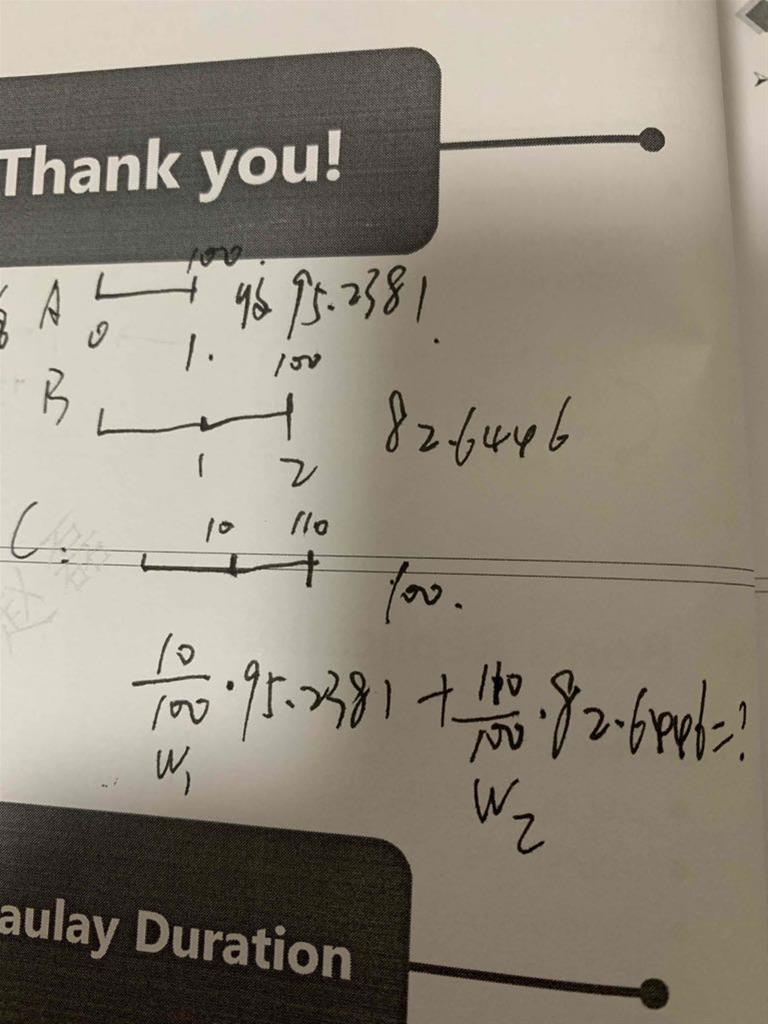 Thank you!
100.
A 95.2381
0 1.
100
B 82.6446
1 2
10 110
C: 100.
10/100 · 95.2381 + 110/100 · 82.6446 = ?
W1 W2
aulay Duration